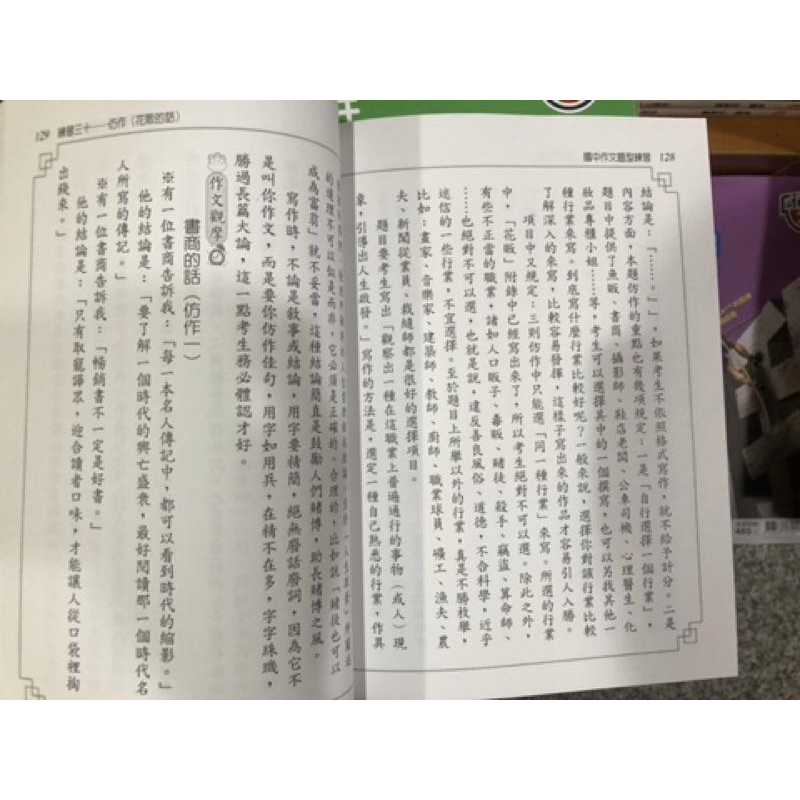 國中作文題型練習 128
結論是：「……。」，如果考生不依照格式寫作，就不給予計分。二是
內容方面，本題仿作的重點也有幾項規定：一是「自行選擇一個行業」，
題目中提供了魚販、書商、攝影師、鞋店老闆、公車司機、心理醫生、化
妝品專櫃小姐……等，考生可以選擇其中的一個撰寫，也可以另找其他一
種行業來寫。到底寫什麼行業比較好呢？一般來說，選擇你對該行業比較
了解深入的來寫，比較容易發揮，這樣子寫出來的作品才容易引人入勝。
項目中又規定：三則仿作中只能選「同一種行業」來寫。所選的行業
中，「花販」附錄中已經寫出來了，所以考生絕對不可以選。除此之外，
有些不正當的職業，諸如人口販子、毒販、賭徒、殺手、竊盜、算命師、
……也絕對不可以選，也就是說，違反善良風俗、道德，不合科學，近乎
迷信的一些行業，不宜選擇。至於題目上所舉以外的行業，真是不勝枚舉，
比如：畫家、音樂家、建築師、教師、廚師、職業球員、礦工、漁夫、農
夫、新聞從業員、裁縫師都是很好的選擇項目。
題目要考生寫出「觀察出一種在這職業上普遍通行的事物（或人）現
象，引導出人生啟發。」寫作的方法是，選定一種自己熟悉的行業，作具
的道理不可以似是而非，它必須是正確的、合理的，比如說「賭徒也可以
成為富翁」就不妥當，這種結論簡直是鼓勵人們賭博，助長賭博之風。
寫作時，不論是敘事或結論，用字要精簡，絕無廢話廢詞，因為它不
是叫你作文，而是要你仿作佳句，用字如用兵，在精不在多，字字珠璣，
勝過長篇大論，這一點考生務必體認才好。
作文觀摩
書商的話（仿作一）
※有一位書商告訴我：「每一本名人傳記中，都可以看到時代的縮影。」
他的結論是：「要了解一個時代的興亡盛衰，最好閱讀那一個時代名
人所寫的傳記。」
※有一位書商告訴我：「暢銷書不一定是好書。」
他的結論是：「只有取寵譁眾，迎合讀者口味，才能讓人從口袋裡掏
出錢來。」
129 練習三十——仿作（花販的話）